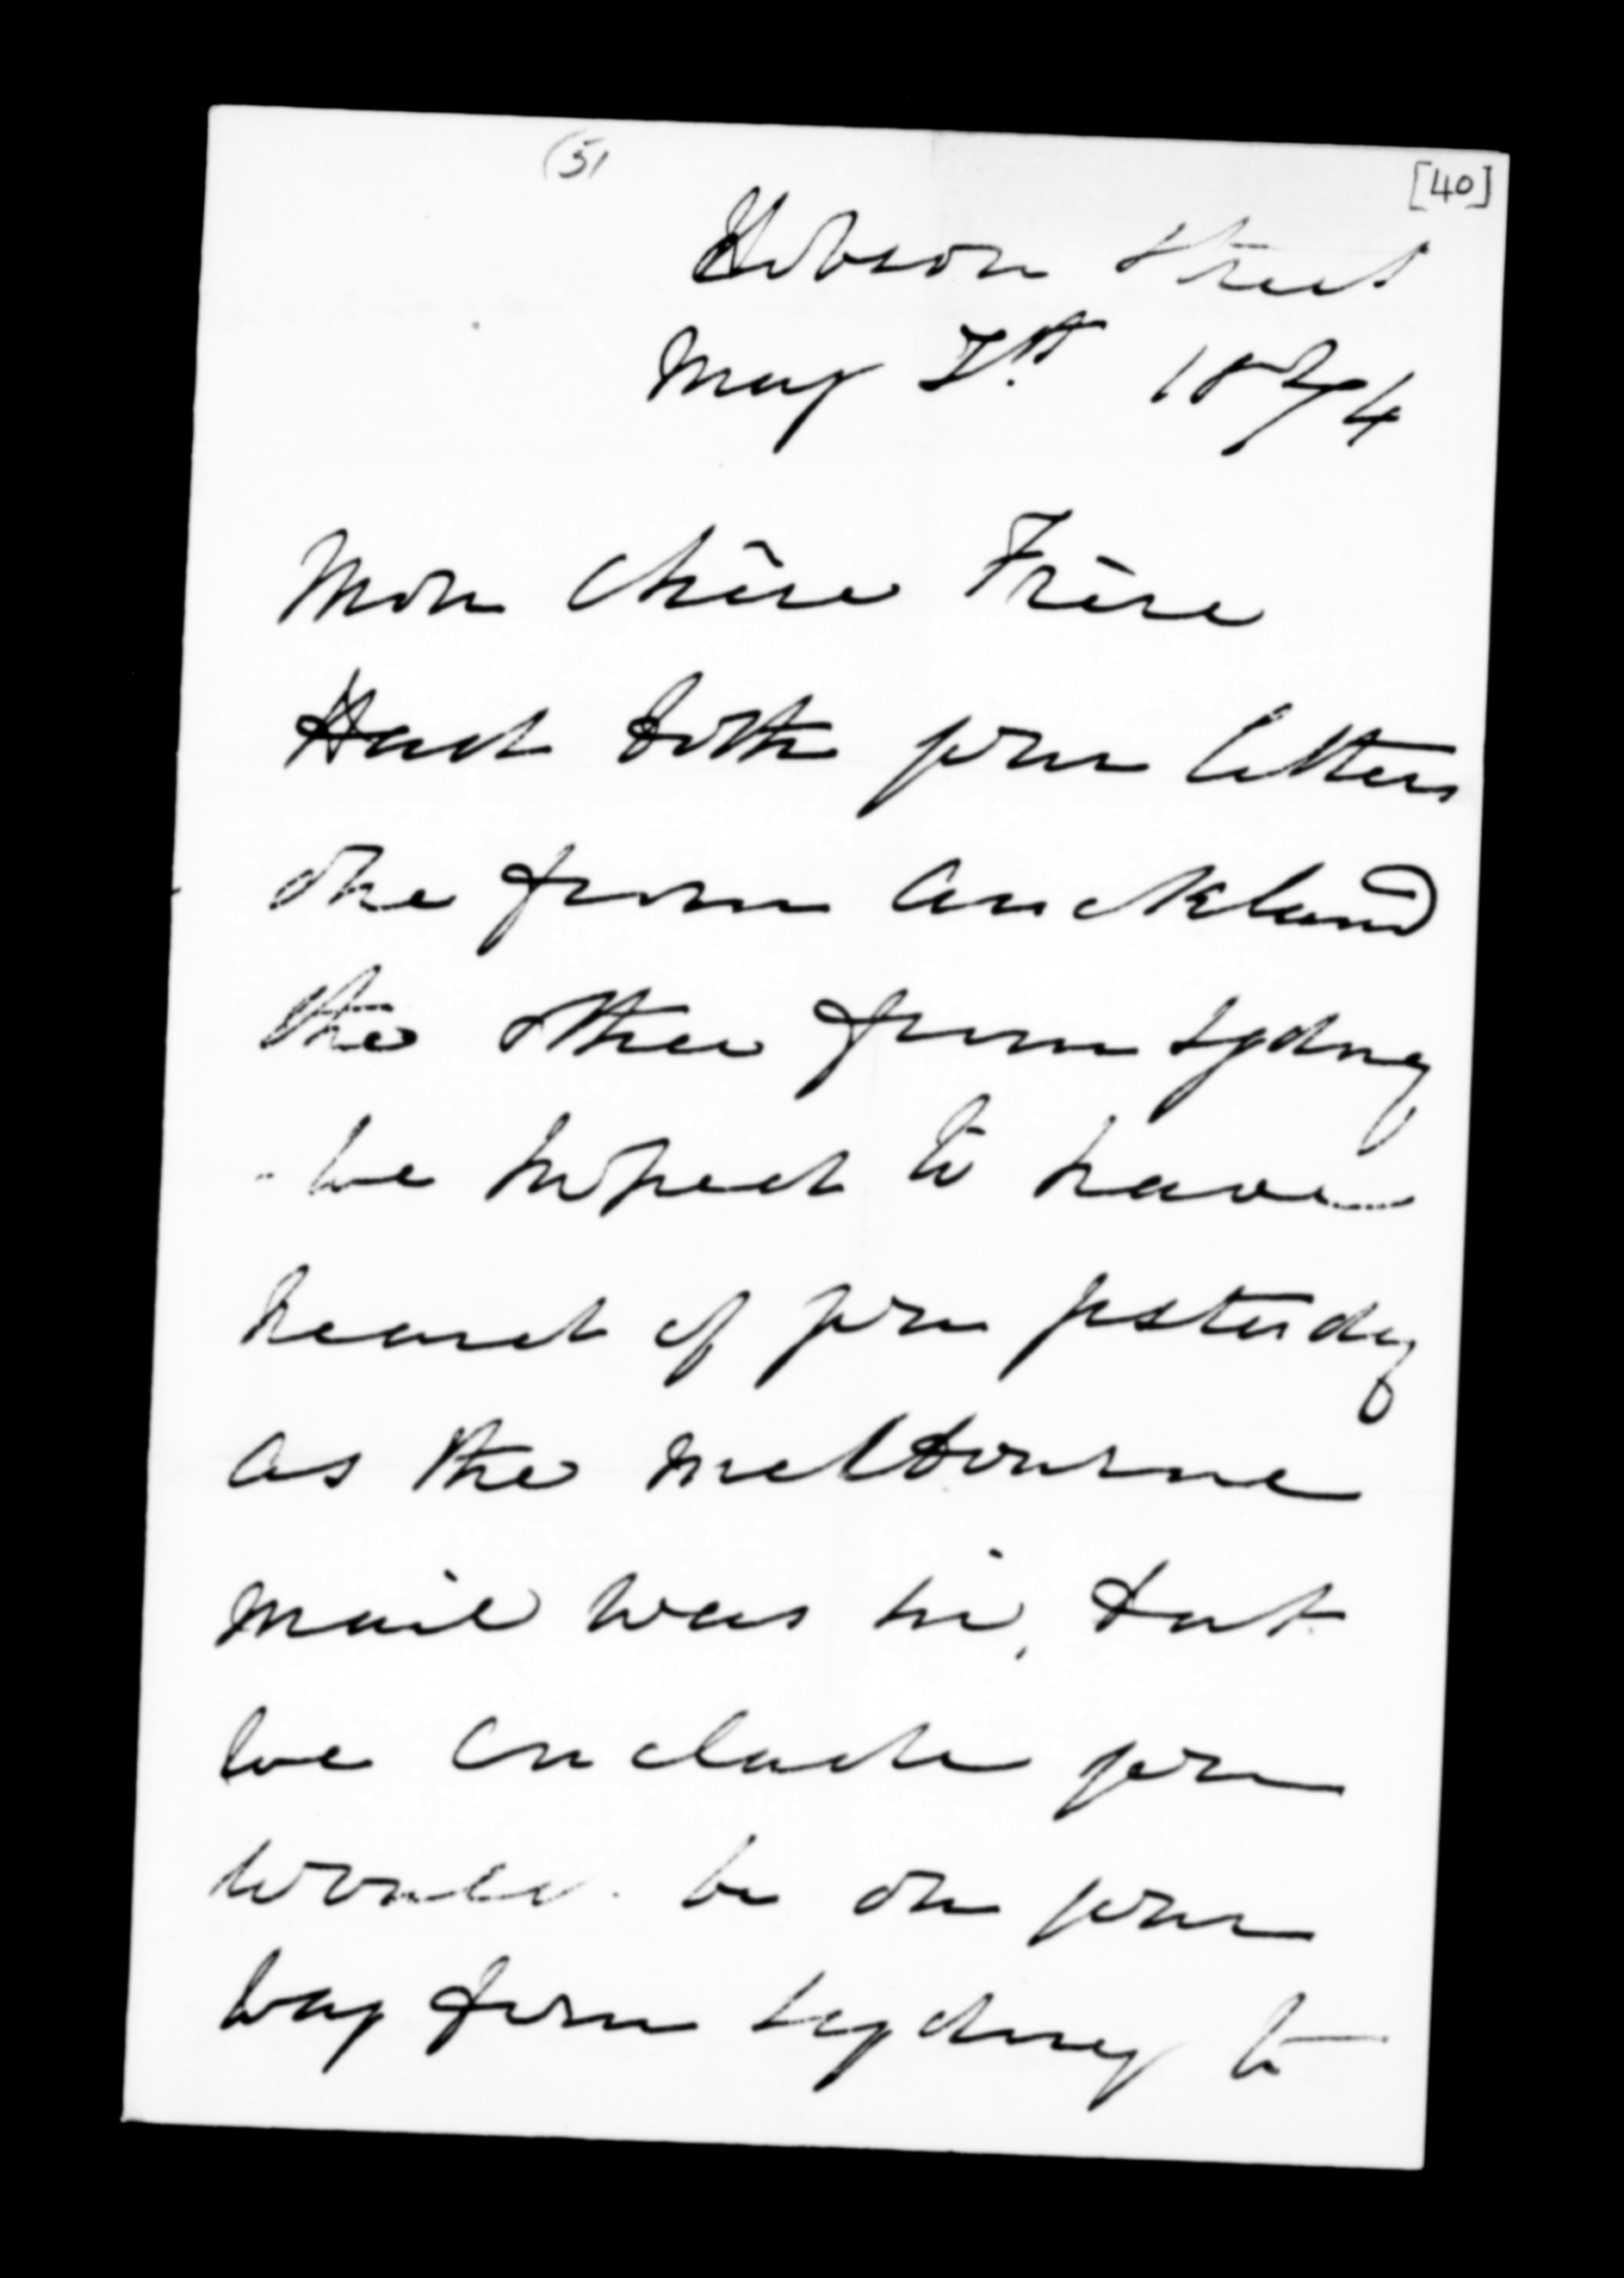 (51
[40]
Hobson Street
May 7th 1874
Mon Chère Frère
Had both your letters
one from Auckland
the other from Sydney
- we hoped to have
heard of you yesterdy
as the Melbourne
mail was in, but
we conclude you
would be on your
way from Sydney to